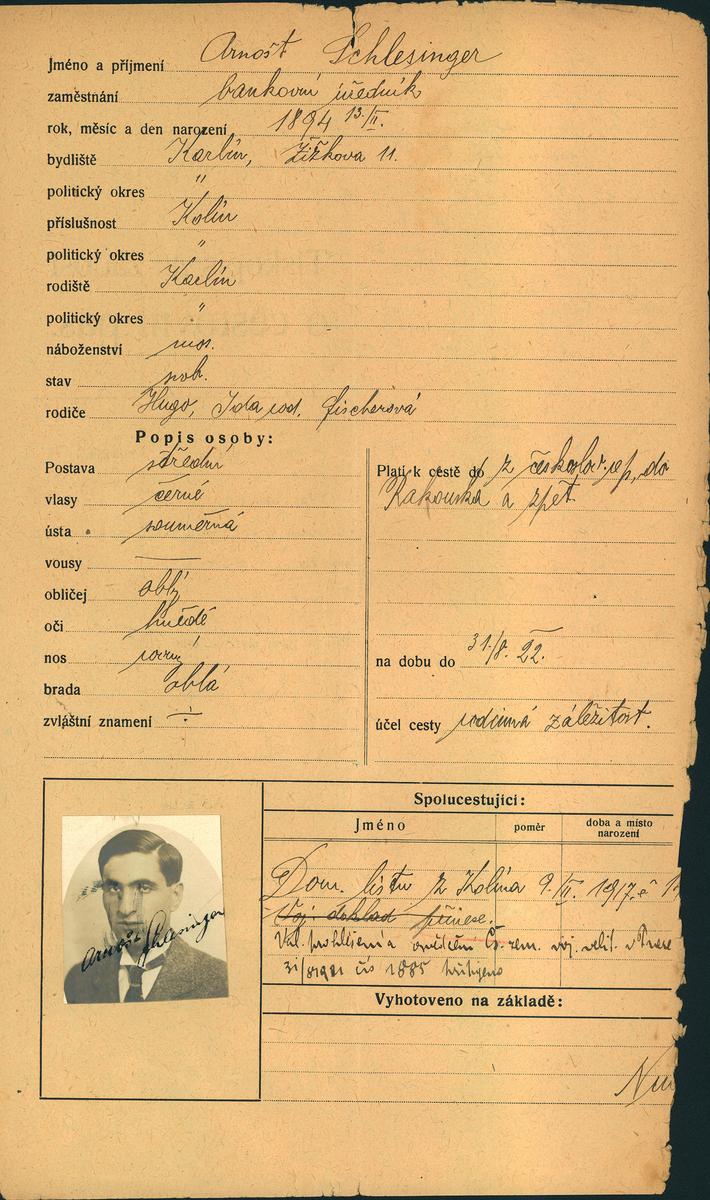 Jméno a příjmení Arnošt Schlesinger
zaměstnání bankovní úředník
rok, měsíc a den narození 1894 13/II.
bydliště Karlín, Žižkova 11.
politický okres "
příslušnost Kolín
politický okres "
rodiště Karlín
politický okres "
náboženství mos.
stav svob.
rodiče Hugo, Ida rod. Fischerová
Popis osoby:
Postava střední
vlasy černé
ústa souměrná
vousy —
obličej oblý
oči hnědé
nos rovný
brada oblá
zvláštní znamení ÷
Platí k cestě do z českoslov. rep. do
Rakouska a zpět
na dobu do 31/8. 22.
účel cesty rodinná záležitost.
Spolucestující:
Jméno poměr doba a místo narození
Dom. listu z Kolína 9./II. 1917 č
Voj. doklad přinese.
prohlášení a Čs. zem. voj. velit. v Praze
31/8 1921 čís 1885
Vyhotoveno na základě:
Arnošt Schlesinger